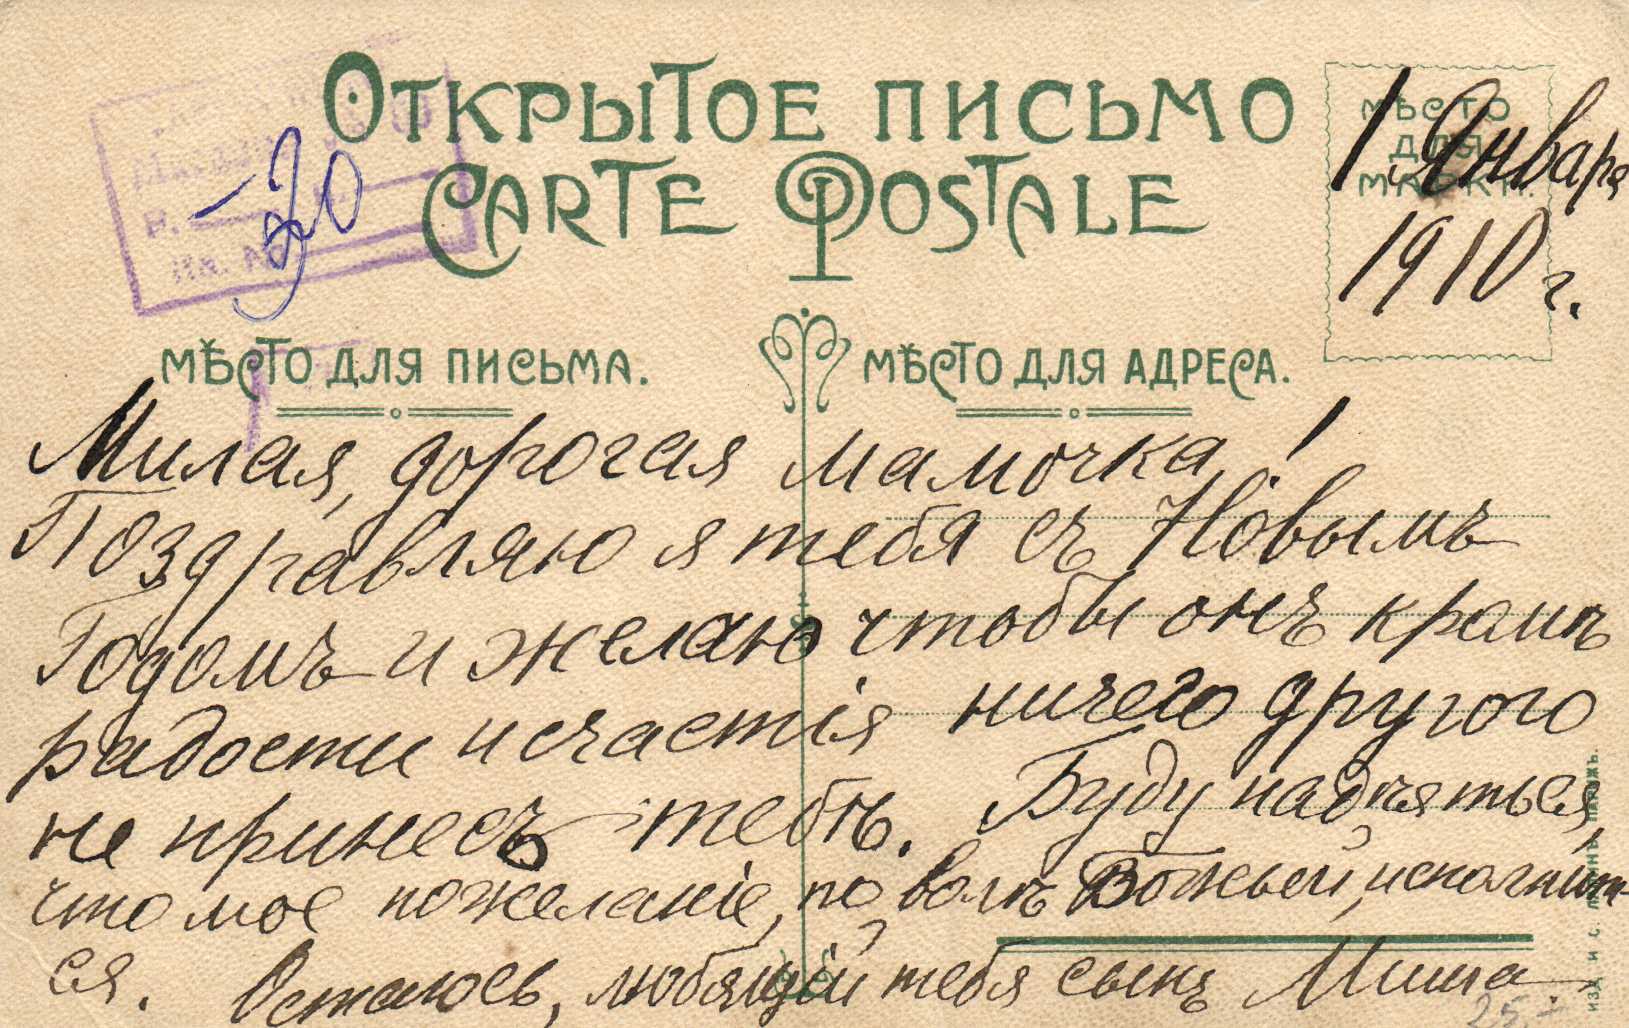 Открытое письмо
Carte Postale
Мѣсто
для
марки.
1 Января
1910 г.
-20
В.
Мѣсто для письма.
Мѣсто для адреса.
Милая, дорогая мамочка!
Поздравляю я тебя съ Новымъ
Годомъ и желаю чтобы онъ кромѣ
радости и счастія ничего другого
не принесъ тебѣ. Буду надѣяться,
что мое пожеланіе, по волѣ Божьей, исполнит-
ся. Остаюсь, любящій тебя сынъ Миша.
25